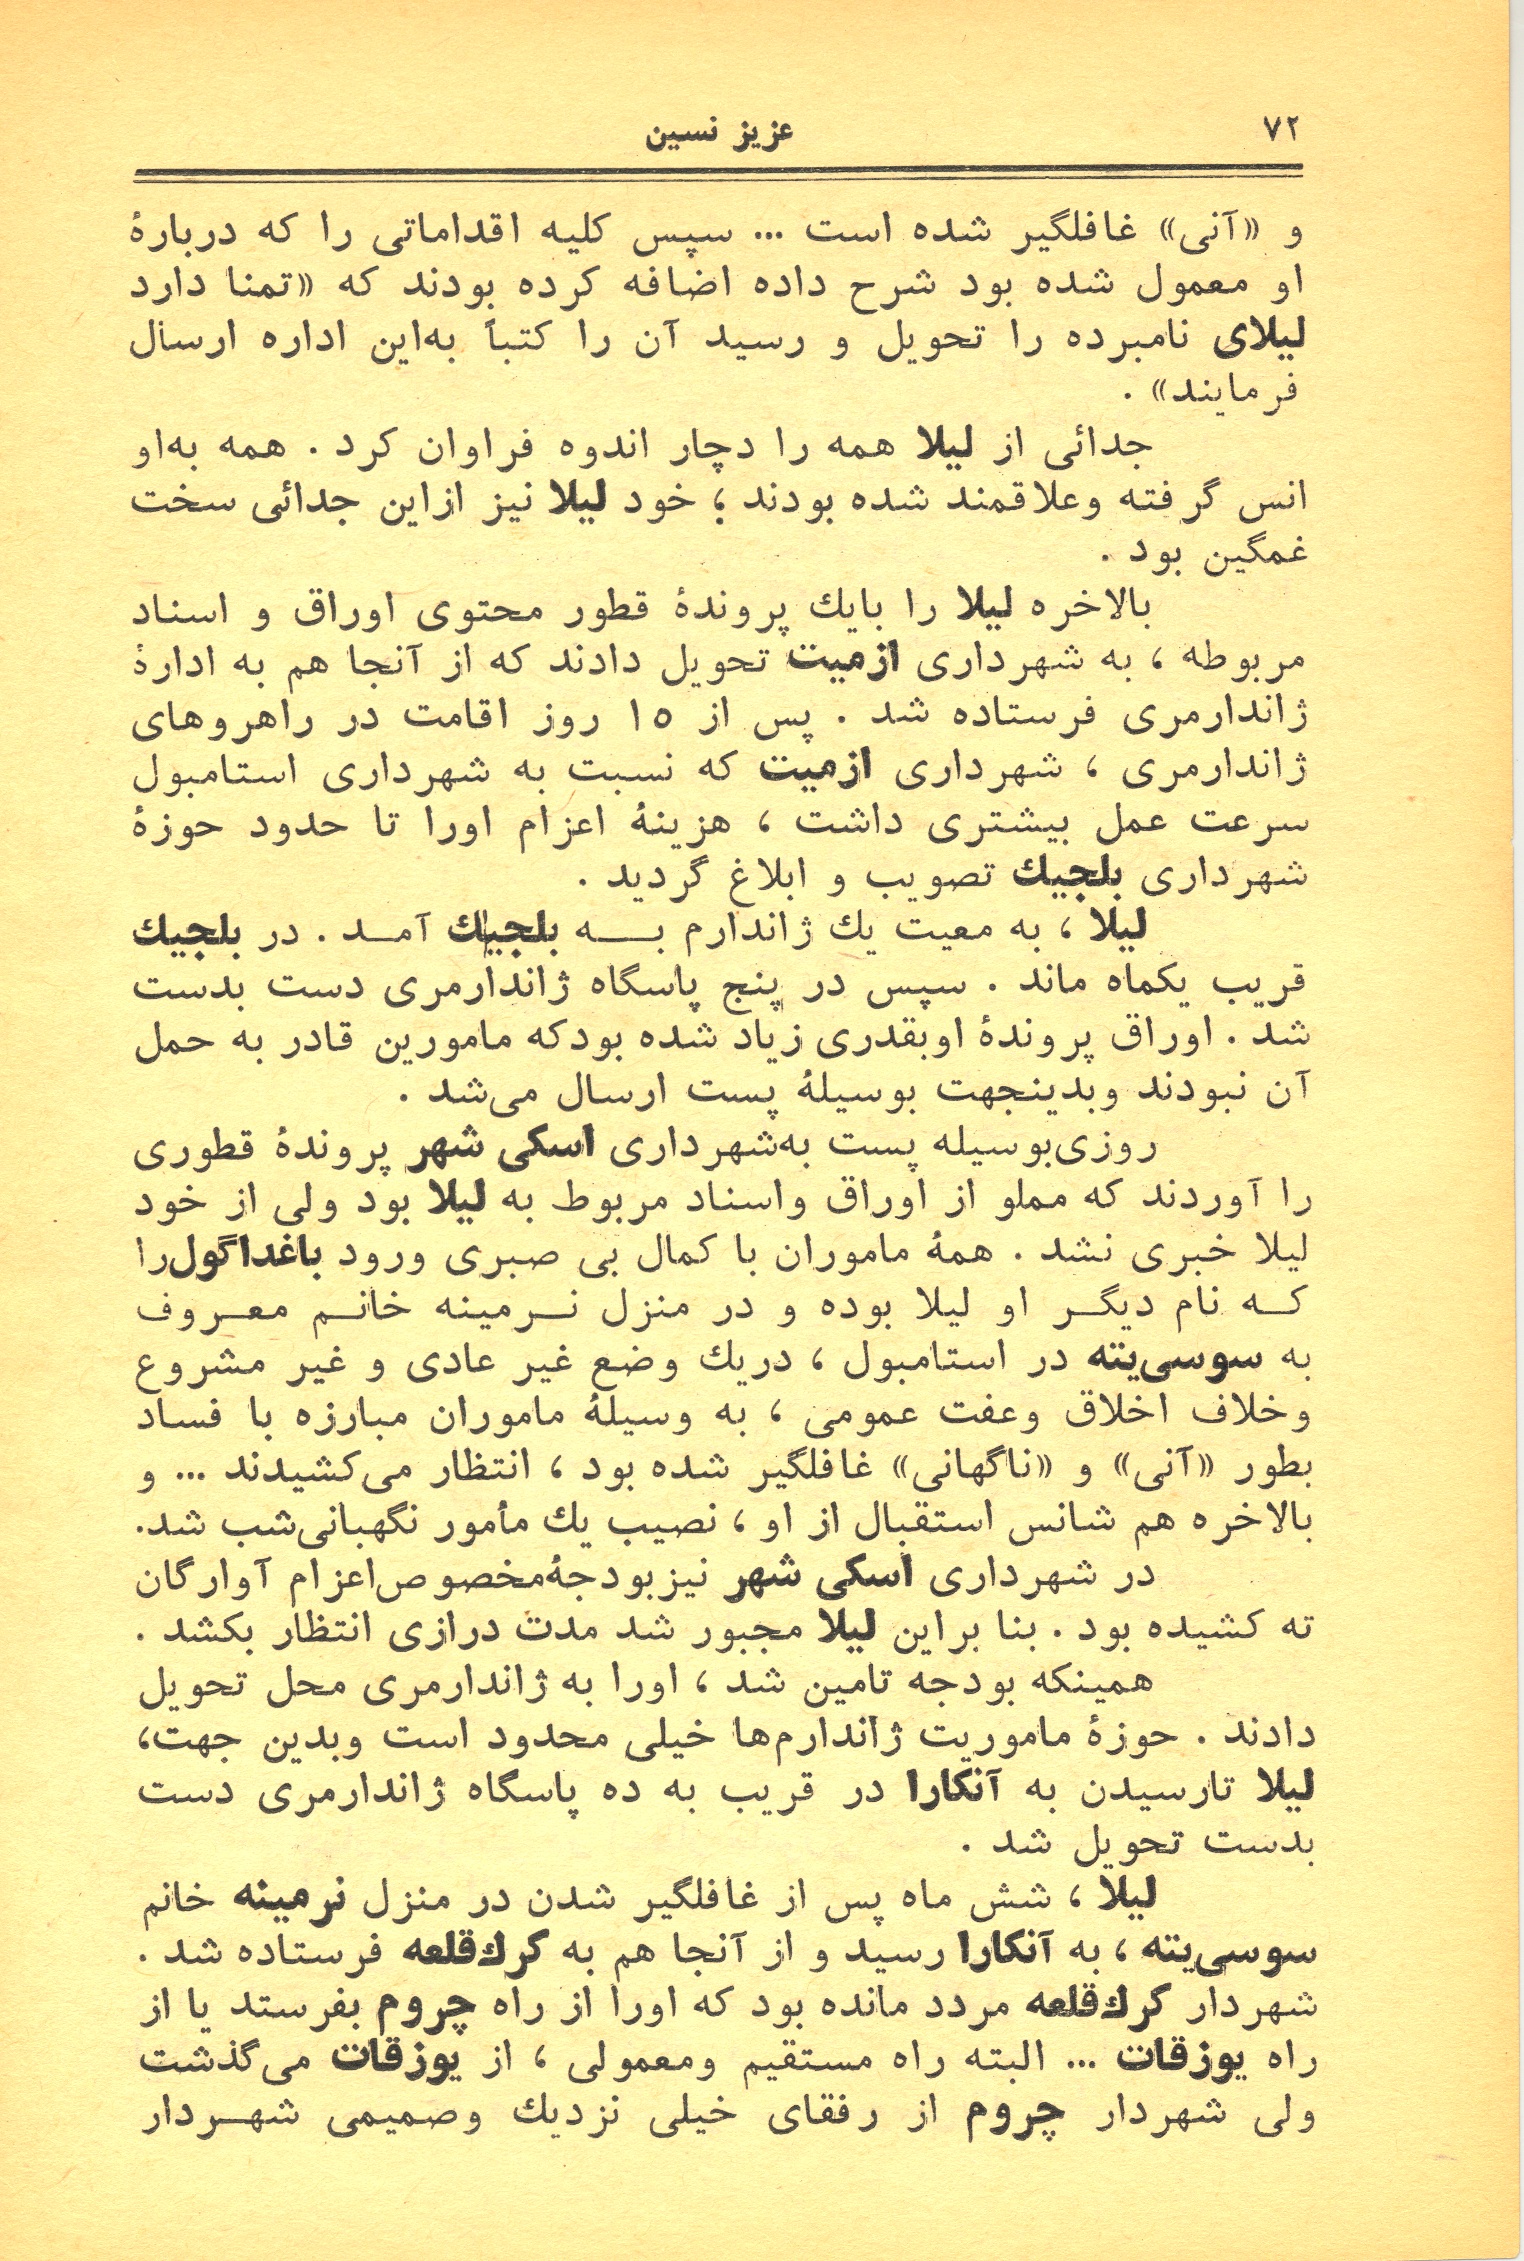 ۷۲
عزیز نسین
و «آنی» غافلگیر شده است ... سپس کلیه اقداماتی را که دربارهٔ
او معمول شده بود شرح داده اضافه کرده بودند که «تمنا دارد
لیلای نامبرده را تحویل و رسید آن را کتباً به‌این اداره ارسال
فرمایند» .
جدائی از لیلا همه را دچار اندوه فراوان کرد . همه به‌او
انس گرفته وعلاقمند شده بودند ؛ خود لیلا نیز ازاین جدائی سخت
غمگین بود .
بالاخره لیلا را بایك پروندهٔ قطور محتوی اوراق و اسناد
مربوطه ، به شهرداری ازمیت تحویل دادند که از آنجا هم به ادارهٔ
ژاندارمری فرستاده شد . پس از ۱۵ روز اقامت در راهروهای
ژاندارمری ، شهرداری ازمیت که نسبت به شهرداری استامبول
سرعت عمل بیشتری داشت ، هزینهٔ اعزام اورا تا حدود حوزهٔ
شهرداری بلجیك تصویب و ابلاغ گردید .
لیلا ، به معیت یك ژاندارم بــه بلجیك آمــد . در بلجیك
قریب یکماه ماند . سپس در پنج پاسگاه ژاندارمری دست بدست
شد . اوراق پروندهٔ اوبقدری زیاد شده بودکه مامورین قادر به حمل
آن نبودند وبدینجهت بوسیلهٔ پست ارسال می‌شد .
روزی‌بوسیله پست به‌شهرداری اسکی شهر پروندهٔ قطوری
را آوردند که مملو از اوراق واسناد مربوط به لیلا بود ولی از خود
لیلا خبری نشد . همهٔ ماموران با کمال بی صبری ورود باغداگول‌را
کــه نام دیگــر او لیلا بوده و در منزل نــرمینه خانــم معــروف
به سوسی‌یته در استامبول ، دریك وضع غیر عادی و غیر مشروع
وخلاف اخلاق وعفت عمومی ، به وسیلهٔ ماموران مبارزه با فساد
بطور «آنی» و «ناگهانی» غافلگیر شده بود ، انتظار می‌کشیدند ... و
بالاخره هم شانس استقبال از او ، نصیب یك مأمور نگهبانی‌شب شد.
در شهرداری اسکی شهر نیزبودجهٔ‌مخصوص‌اعزام آوارگان
ته کشیده بود . بنا براین لیلا مجبور شد مدت درازی انتظار بکشد .
همینکه بودجه تامین شد ، اورا به ژاندارمری محل تحویل
دادند . حوزهٔ ماموریت ژاندارم‌ها خیلی محدود است وبدین جهت،
لیلا تارسیدن به آنکارا در قریب به ده پاسگاه ژاندارمری دست
بدست تحویل شد .
لیلا ، شش ماه پس از غافلگیر شدن در منزل نرمینه خانم
سوسی‌یته ، به آنکارا رسید و از آنجا هم به کرك‌قلعه فرستاده شد .
شهردار کرك‌قلعه مردد مانده بود که اورا از راه چروم بفرستد یا از
راه یوزقات ... البته راه مستقیم ومعمولی ، از یوزقات می‌گذشت
ولی شهردار چروم از رفقای خیلی نزدیك وصمیمی شهــردار